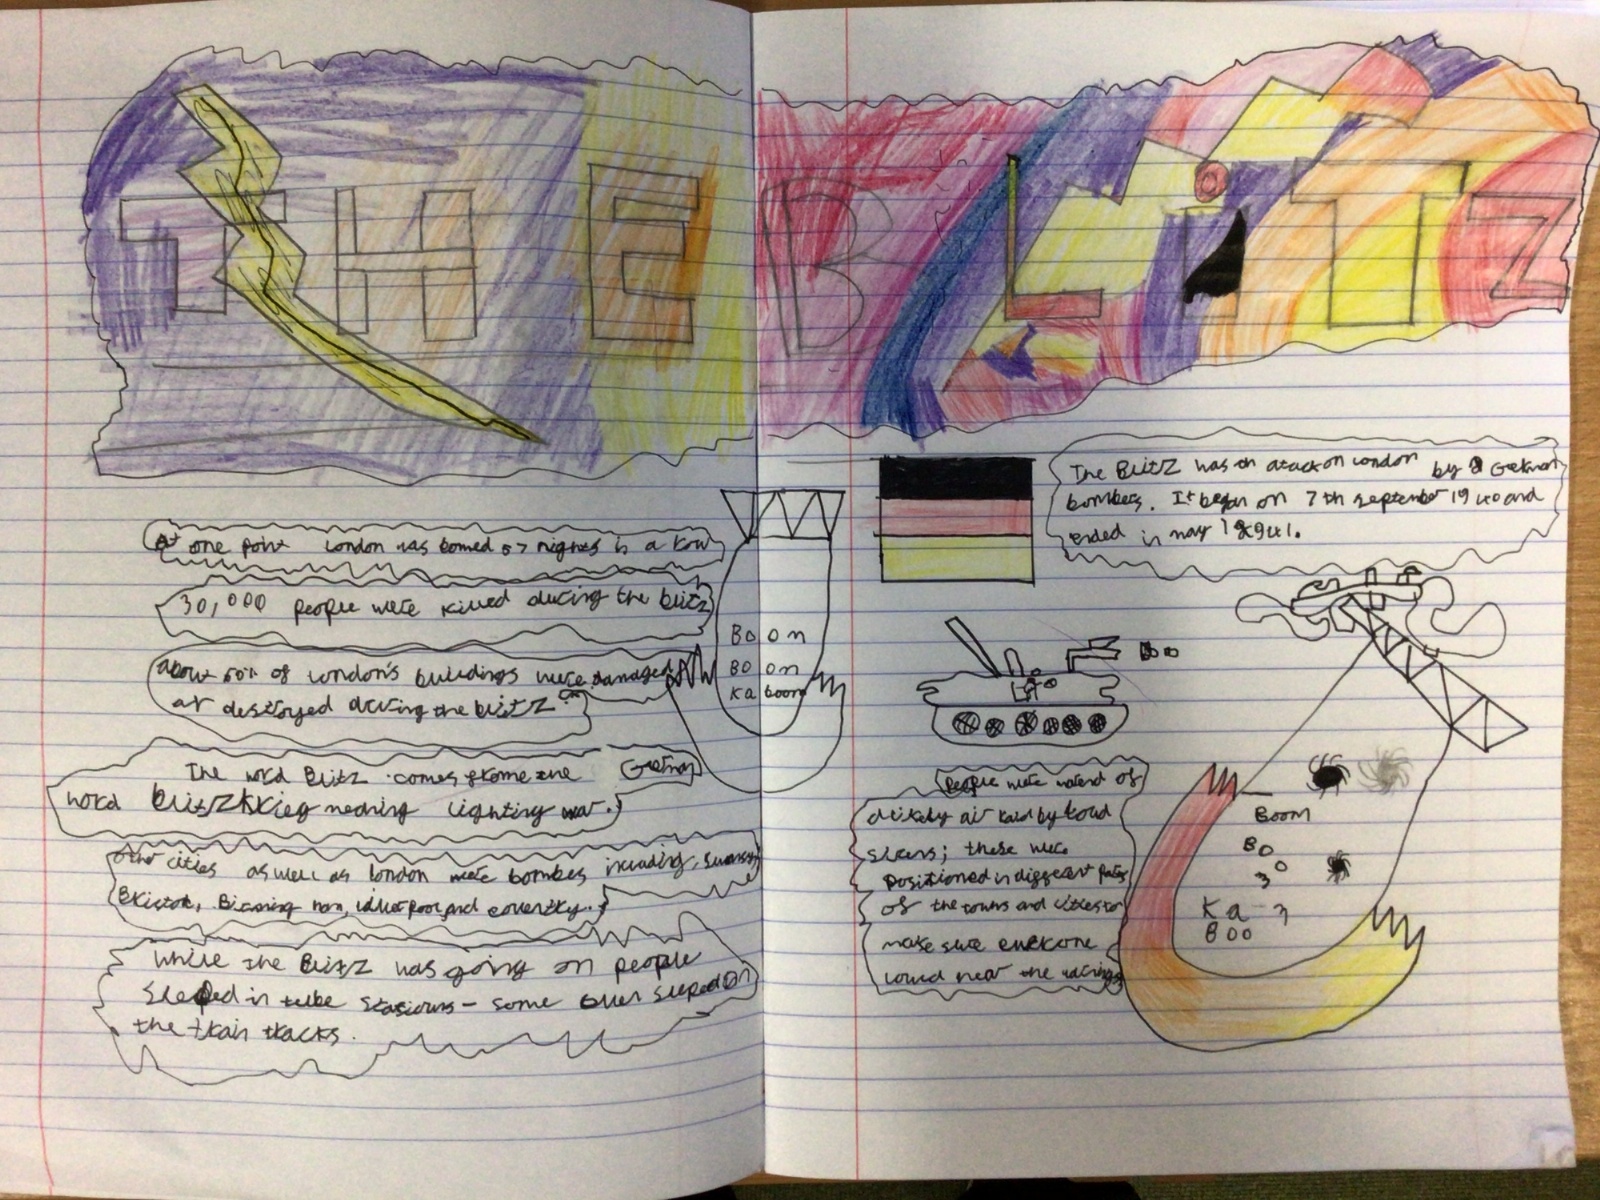 THE BLiTZ
At one point London was bomed 57 nights is a row
30,000 people were killed during the blitz
about 60% of London's buildings were damaged
ar destroyed during the blitz
The word Blitz comes frome the German
word Blitzkrieg meaning lighting war.
Other cities as well as london were bombes including, swansey
Bristol, Birming ham, idverpool and coventry.
While the Blitz was going on people
sleeped in tube stasiouns - some even sleped on
the train tracks.
Boom
Boom
Ka boom
The Blitz was an atack on London by German
bombers. It began on 7th september 1940 and
ended in may 1941.
Boo
People were warend of
drikely air raid by loud
sirens; these were
Positioned in different parts
of the towns and cities to
make sure everkone
could hear the warnings
Boom
Bo
o
Ka
Boo